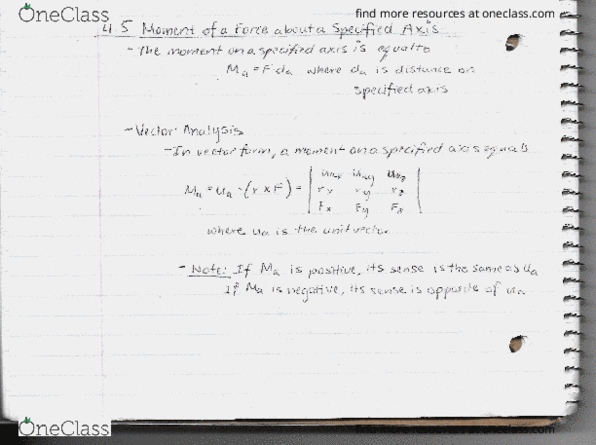 OneClass
find more resources at oneclass.com
4.5 Moment of a Force about a Specified Axis
- The moment on a specified axis is equal to
Ma = F·da where da is distance on
specified axis
- Vector Analysis
- In vector form, a moment on a specified axis equals
Ma = ua · (r x F) = | uax uay uaz
rx ry rz
Fx Fy Fz |
where ua is the unit vector
- Note: If Ma is positive, its sense is the same as ua
If Ma is negative, its sense is opposite of ua
OneClass